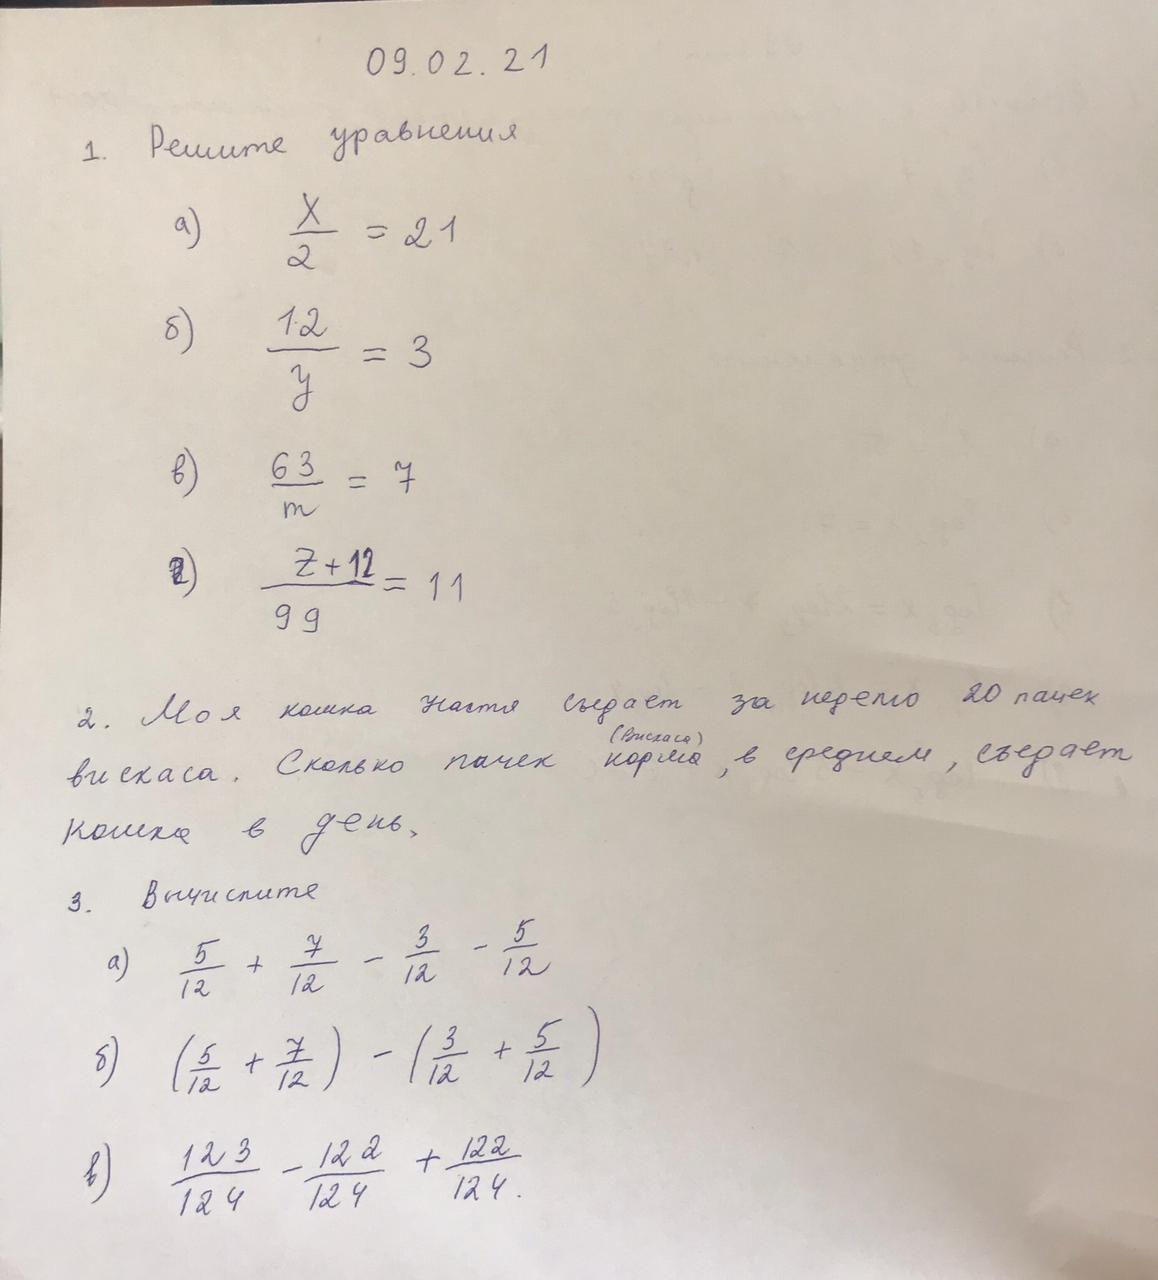 09.02.21
1. Решите уравнения
а) x/2 = 21
б) 12/y = 3
в) 63/m = 7
г) z+12/99 = 11
2. Моя кошка Настя съедает за неделю 20 пачек
(Вискаса)
вискаса. Сколько пачек корма, в среднем, съедает
кошка в день.
3. Вычислите
а) 5/12 + 7/12 - 3/12 - 5/12
б) (5/12 + 7/12) - (3/12 + 5/12)
в) 123/124 - 122/124 + 122/124.